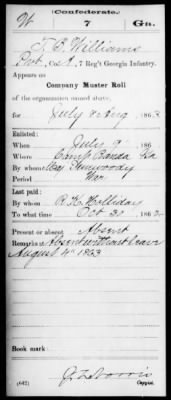 Confederate.
W 7 Ga.
T. B. Williams
Pvt, Co. A, 7 Reg't Georgia Infantry.
Appears on
Company Muster Roll
of the organization named above,
for July & Aug, 1863.
Enlisted:
When July 9
Where Camp Ga
By whom Maj Dunwoody
Period War
Last paid:
By whom R. K. Holliday
To what time Oct 31, 186
Present or absent Absent
Remarks: Absent without leave
August 4th 1863
Book mark:
(642) Copyist.